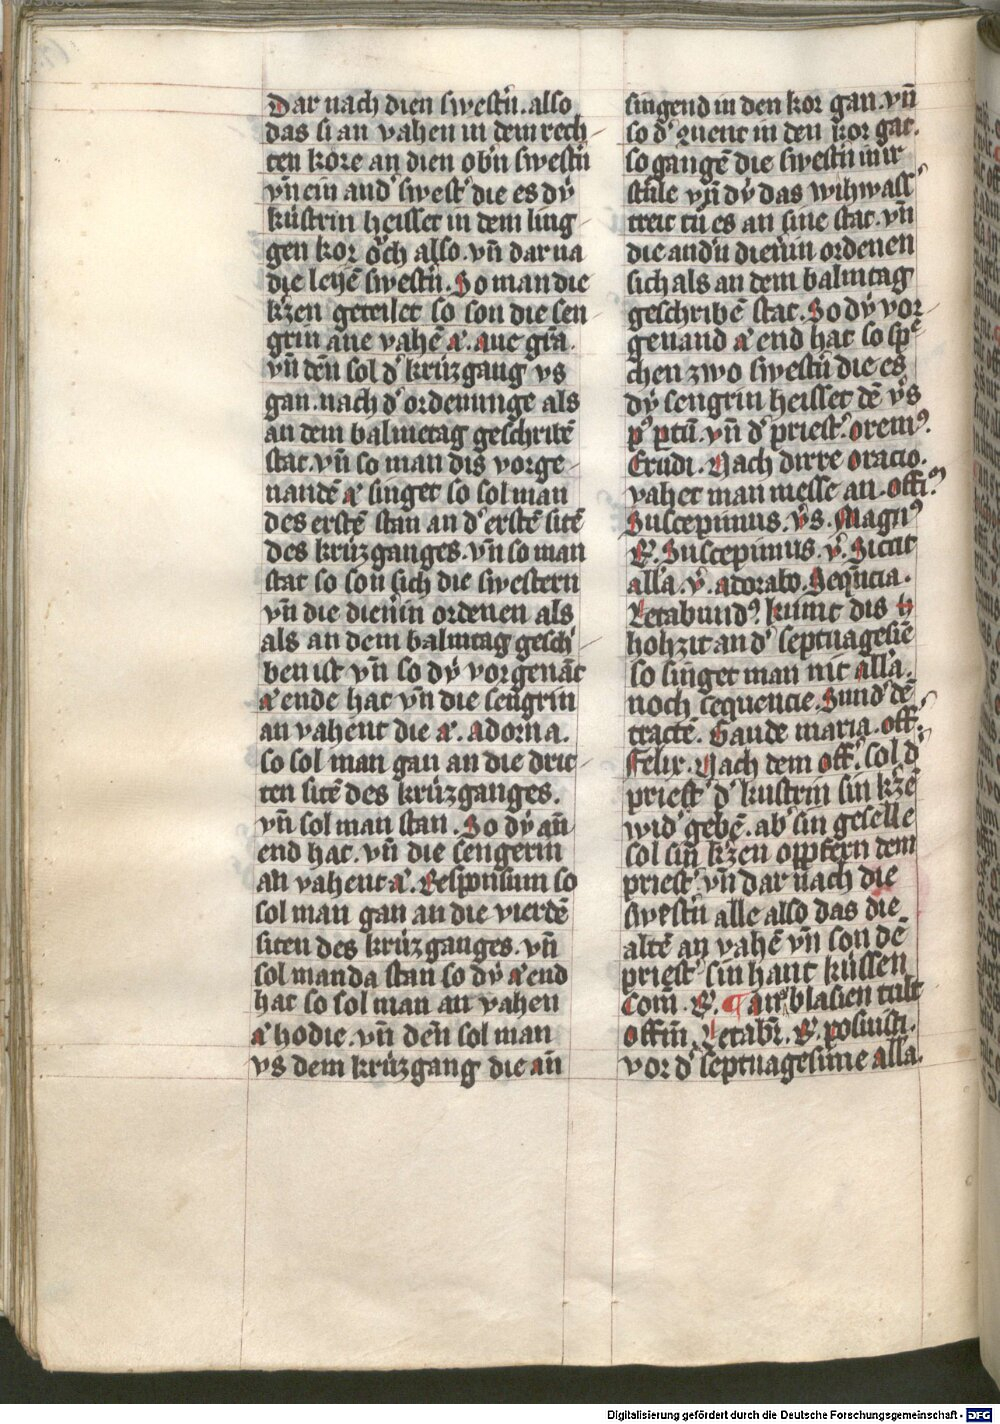 Dar nach dien swestn̄. also
das si an vahen in dem rech
ten kore an dien obn̄ swestn̄
vn̄ ein and' swest' die es dv̈
kv̈strin heisset in dem ling
gen kor öch also. vn̄ dar na
die leyē swestn̄. So man die
k'zen geteilet so son die sen
grin ane vahē a'. auc gr̄a.
vn̄ den̄ sol d' krüzgang vs
gan. nach d' ordenunge als
an dem balmetag geschribē
stat. vn̄ so man dis vorge
nandē a' singet so sol man
des erstē stan an d' erstē sitē
des krüzganges. vn̄ so man
stat so son sich die swestern
vn̄ die dien̄in ordenen als
als an dem balmtag gesch'
ben ist vn̄ so dv̈ vorgenāt
a' ende hat vn̄ die sengrin
an vahent die a'. Adorna.
so sol man gan an die drit
ten sitē des krüzganges.
vn̄ sol man stan. So dv̈ an̄
end hat. vn̄ die sengerin
an vahent a'. Responsum so
sol man gan an die vierdē
siten des krüzganges. vn̄
sol man da stan so dv̈ a' end
hat so sol man an vahen
a' hodie. vn̄ den̄ sol man
vs dem krüzgang die an̄
singend in den kor gan. vn̄
so d' 9uent in den kor gat.
so gangē die swestn̄ in ir
stüle vn̄ dv̈ das wihwass'
treit tü es an sine stat. vn̄
die andn̄ dien̄in ordenen
sich als an dem balmtag
geschribē stat. So dv̈ vor
genand a' end hat so sp'e
chen zwo swestn̄ die es
dv̈ sengrin heisset dē v̄s
p9 ptū. vn̄ d' priest'. orem9.
Erudi. Nach dirre oracio.
vahet man messe an. offi9m
Suscepimus. v̄s. Magn9
R'. Suscepimus. v'. Sicut
all'a. v'. adorabo. Seqūcia.
Letabund9. kumt dis
hohzit an d' septuagesiē
so singet man nit all'a.
noch sequencie. Sund' dē
tractē. Gaude maria. off'.
Felix. Nach dem off'. sol d'
priest' d' kustrin sin k'zē
wid' gebē. ab' sin geselle
sol sin k'zen oppfern dem
priest' vn̄ dar nach die
swestn̄ alle also das die
altē an vahē vn̄ son dē
priest' sin hant küssen
Com̄. R'. ¶ An blasien tult
offim̄. Letab'r. R'. posuisti.
vor d' septuagesime all'a.
Digitalisierung gefördert durch die Deutsche Forschungsgemeinschaft - DFG